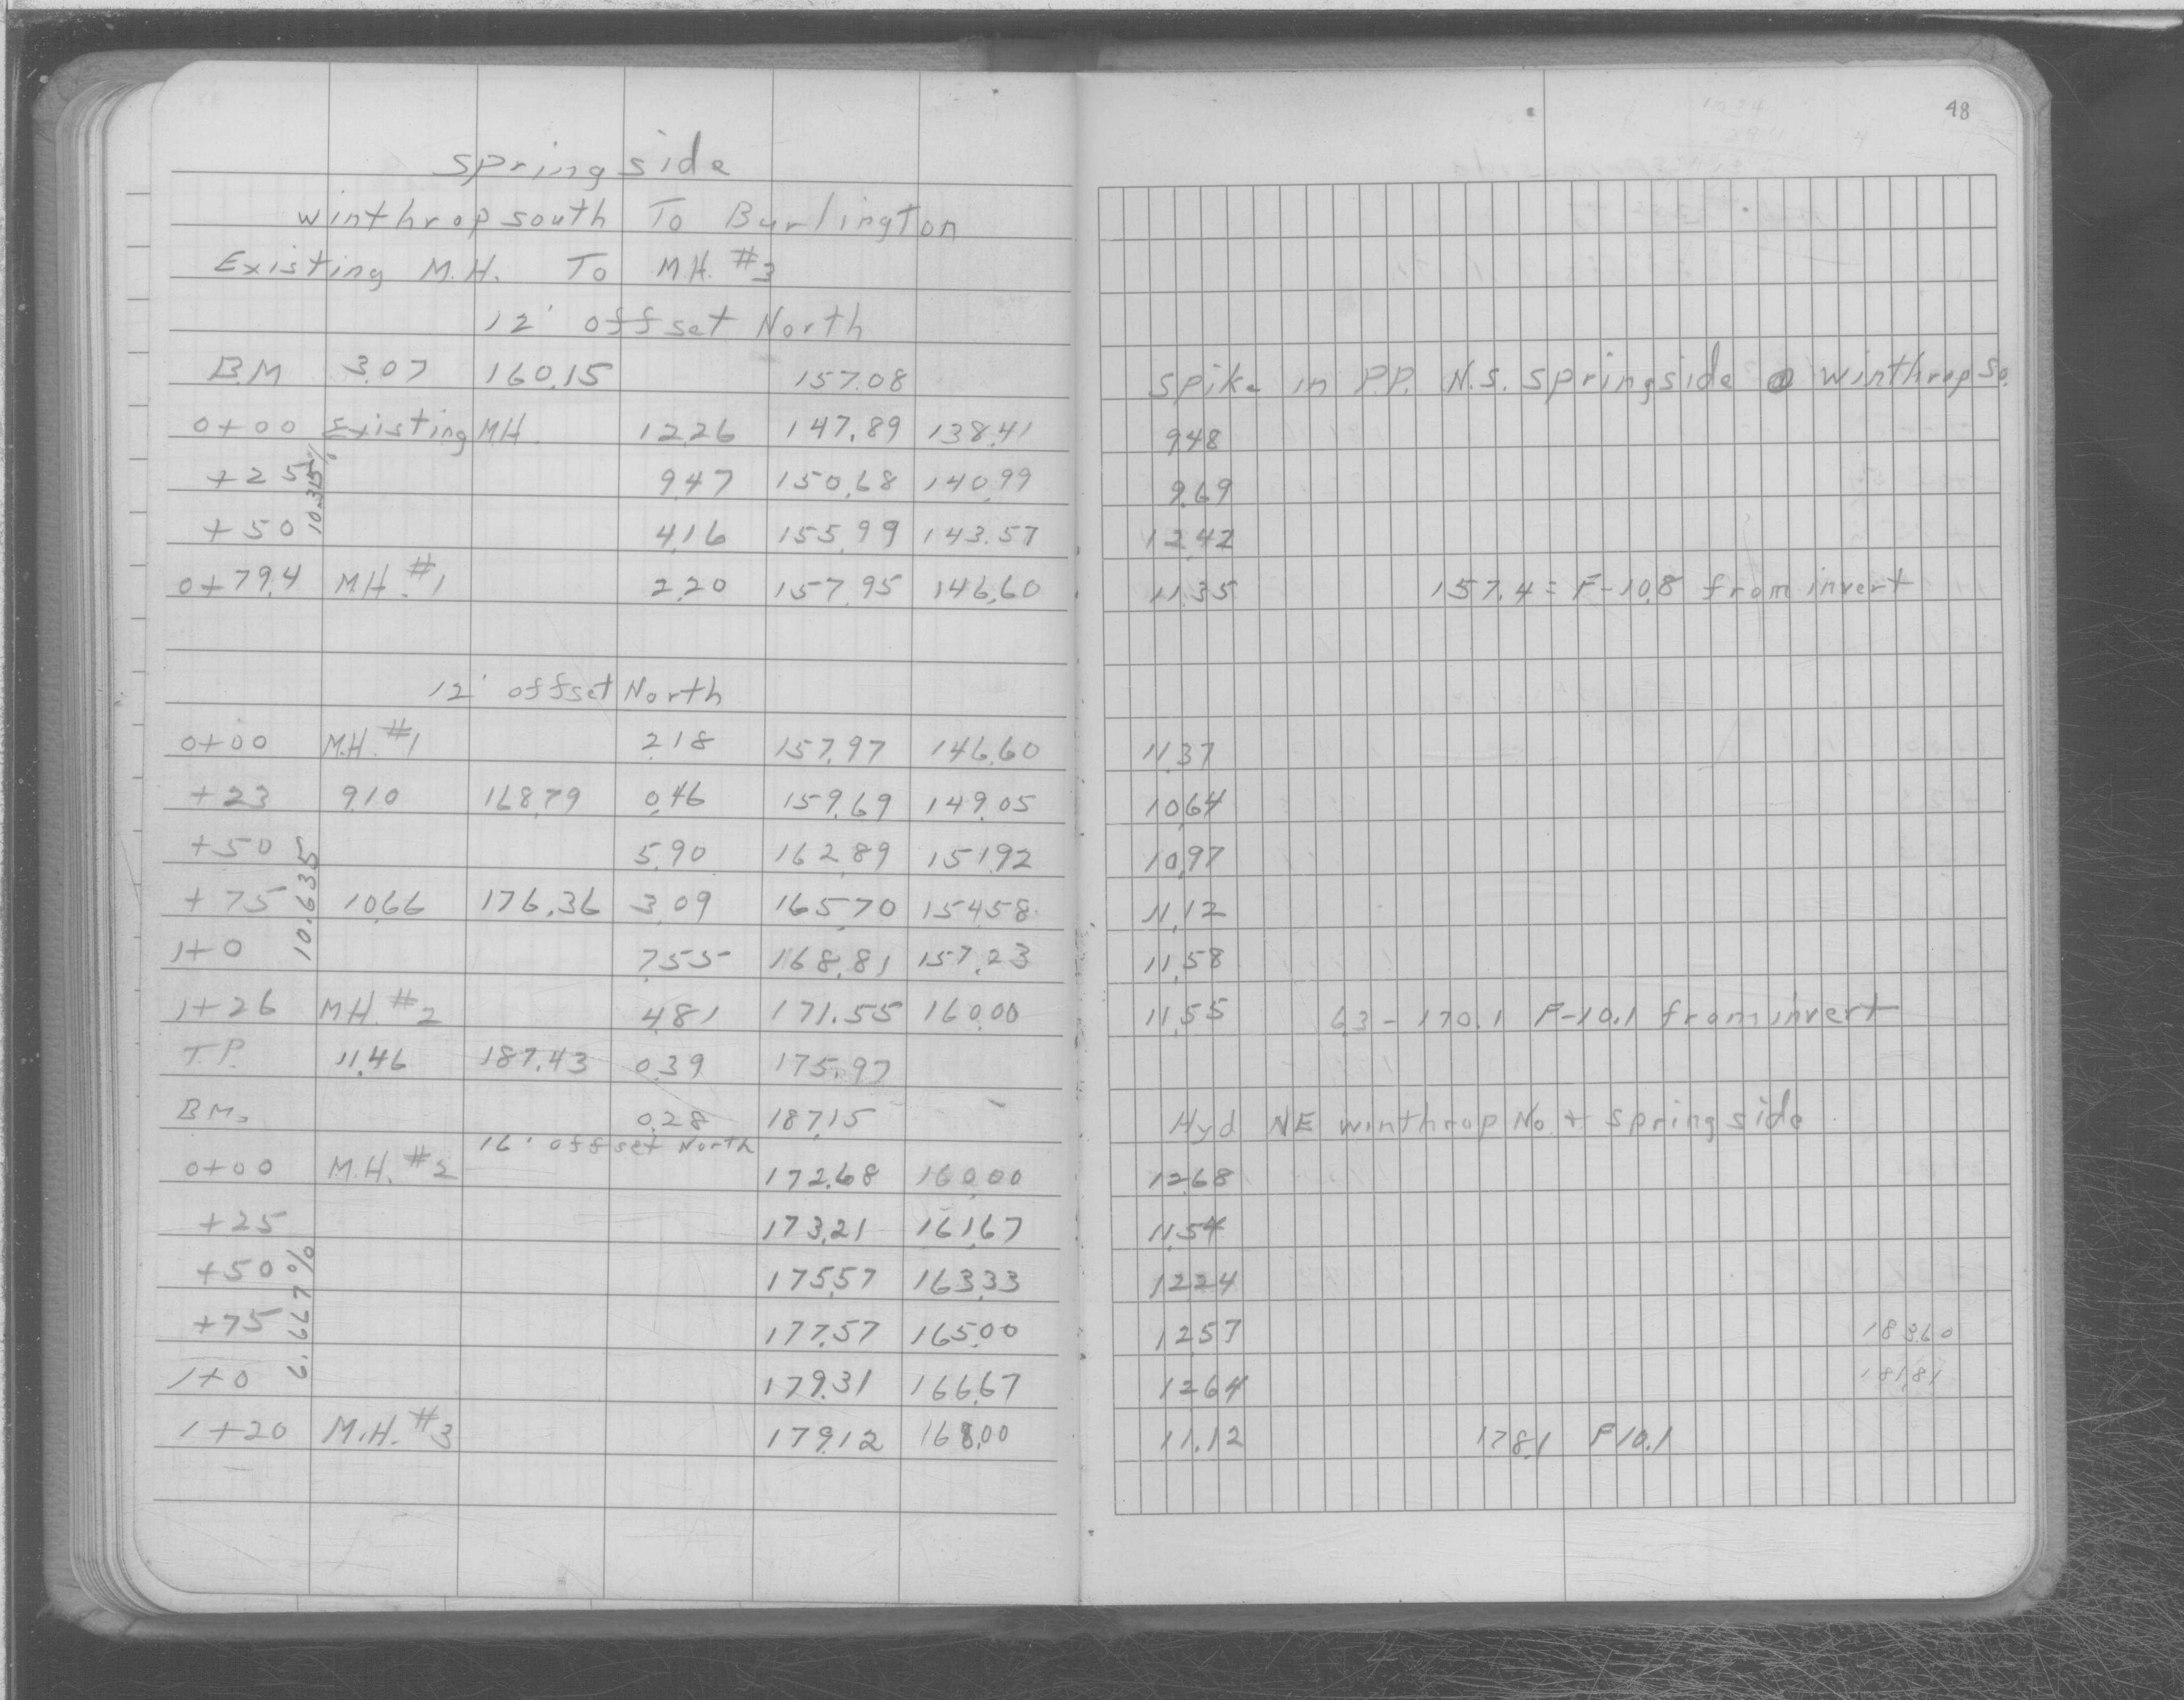 48
Springside
Winthrop south To Burlington
Existing M.H. To M.H. #3
12' offset North
B.M 3.07 160.15 157.08 Spike in P.P. N.S. Springside @ Winthrop So.
0+00 Existing MH. 12.26 147.89 138.41 9.48
+25 9.47 150.68 140.99 9.69
10.315%
+50 4.16 155.99 143.57 12.42
0+79.4 M.H. #1 2.20 157.95 146.60 11.35 157.4 = F-10.8 from invert
12' offset North
0+00 M.H. #1 2.18 157.97 146.60 11.37
+23 9.10 168.79 0.46 159.69 149.05 10.64
+50 5.90 162.89 151.92 10.97
10.635
+75 10.66 176.36 3.09 165.70 154.58 11.12
1+0 7.55 168.81 157.23 11.58
1+26 M.H. #2 4.81 171.55 160.00 11.55 6.3 - 170.1 F-10.1 from invert
T.P. 11.46 187.43 0.39 175.97
B.M. 0.28 187.15 Hyd NE Winthrop No. + Springside
16' offset North
0+00 M.H. #2 172.68 160.00 12.68
+25 173.21 161.67 11.54
+50 175.57 163.33 12.24
6.667%
+75 177.57 165.00 12.57 183.60
1+0 179.31 166.67 12.64 181.81
1+20 M.H. #3 179.12 168.00 11.12 178.1 F10.1